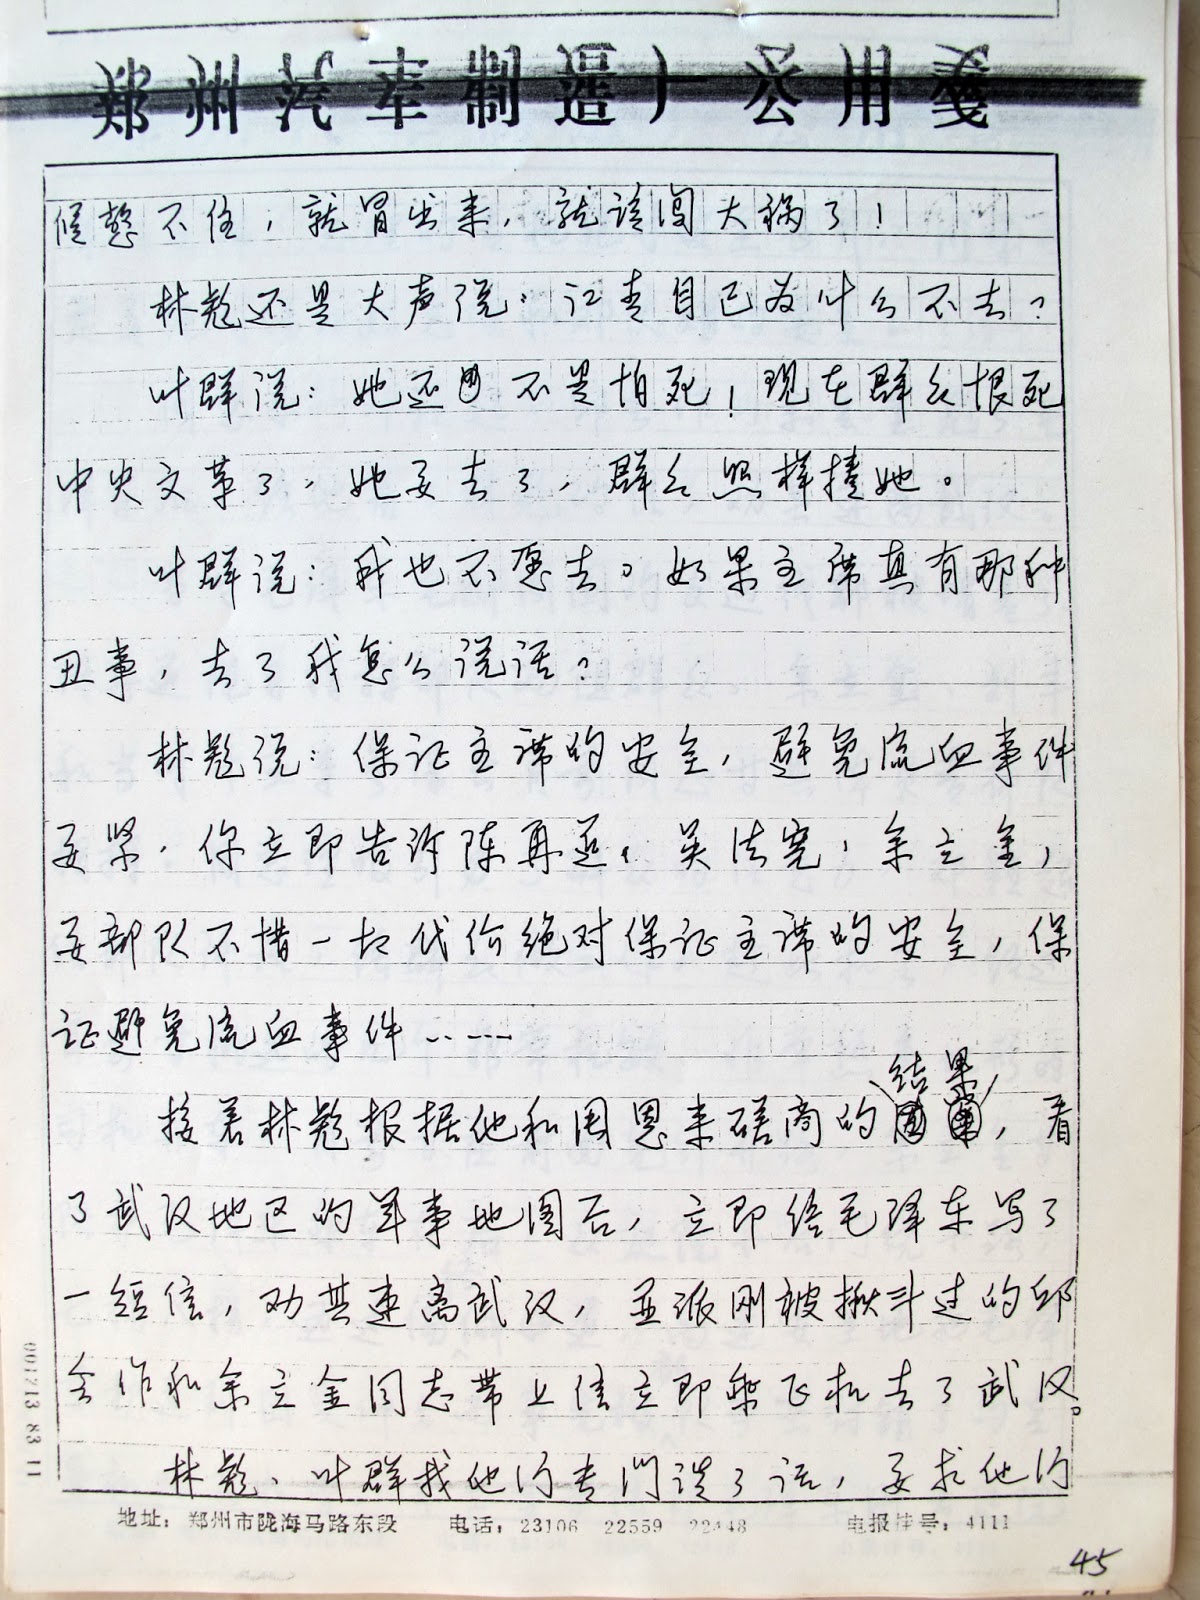 郑州汽车制造厂公用笺
候憋不住，就冒出来，就该闯大祸了！
林彪还是大声说：江青自已为什么不去？
叶群说：她还不是怕死！现在群众恨死
中央文革了，她要去了，群众照样揍她。
叶群说：我也不愿去。如果主席真有那种
丑事，去了我怎么说话？
林彪说：保证主席的安全，避免流血事件
要紧。你立即告诉陈再道、吴法宪、余立金，
要部队不惜一切代价绝对保证主席的安全，保
证避免流血事件……
结果
接着林彪根据他和周恩来磋商的，看
了武汉地区的军事地图后，立即给毛泽东写了
一短信，劝其速离武汉，並派刚被揪斗过的邱
会作和余立金同志带上信立即乘飞机去了武汉。
林彪、叶群找他们专门谈了话，要求他们
地址：郑州市陇海马路东段 电话：23106 22559 22448 电报挂号：4111
001713 83 11
45